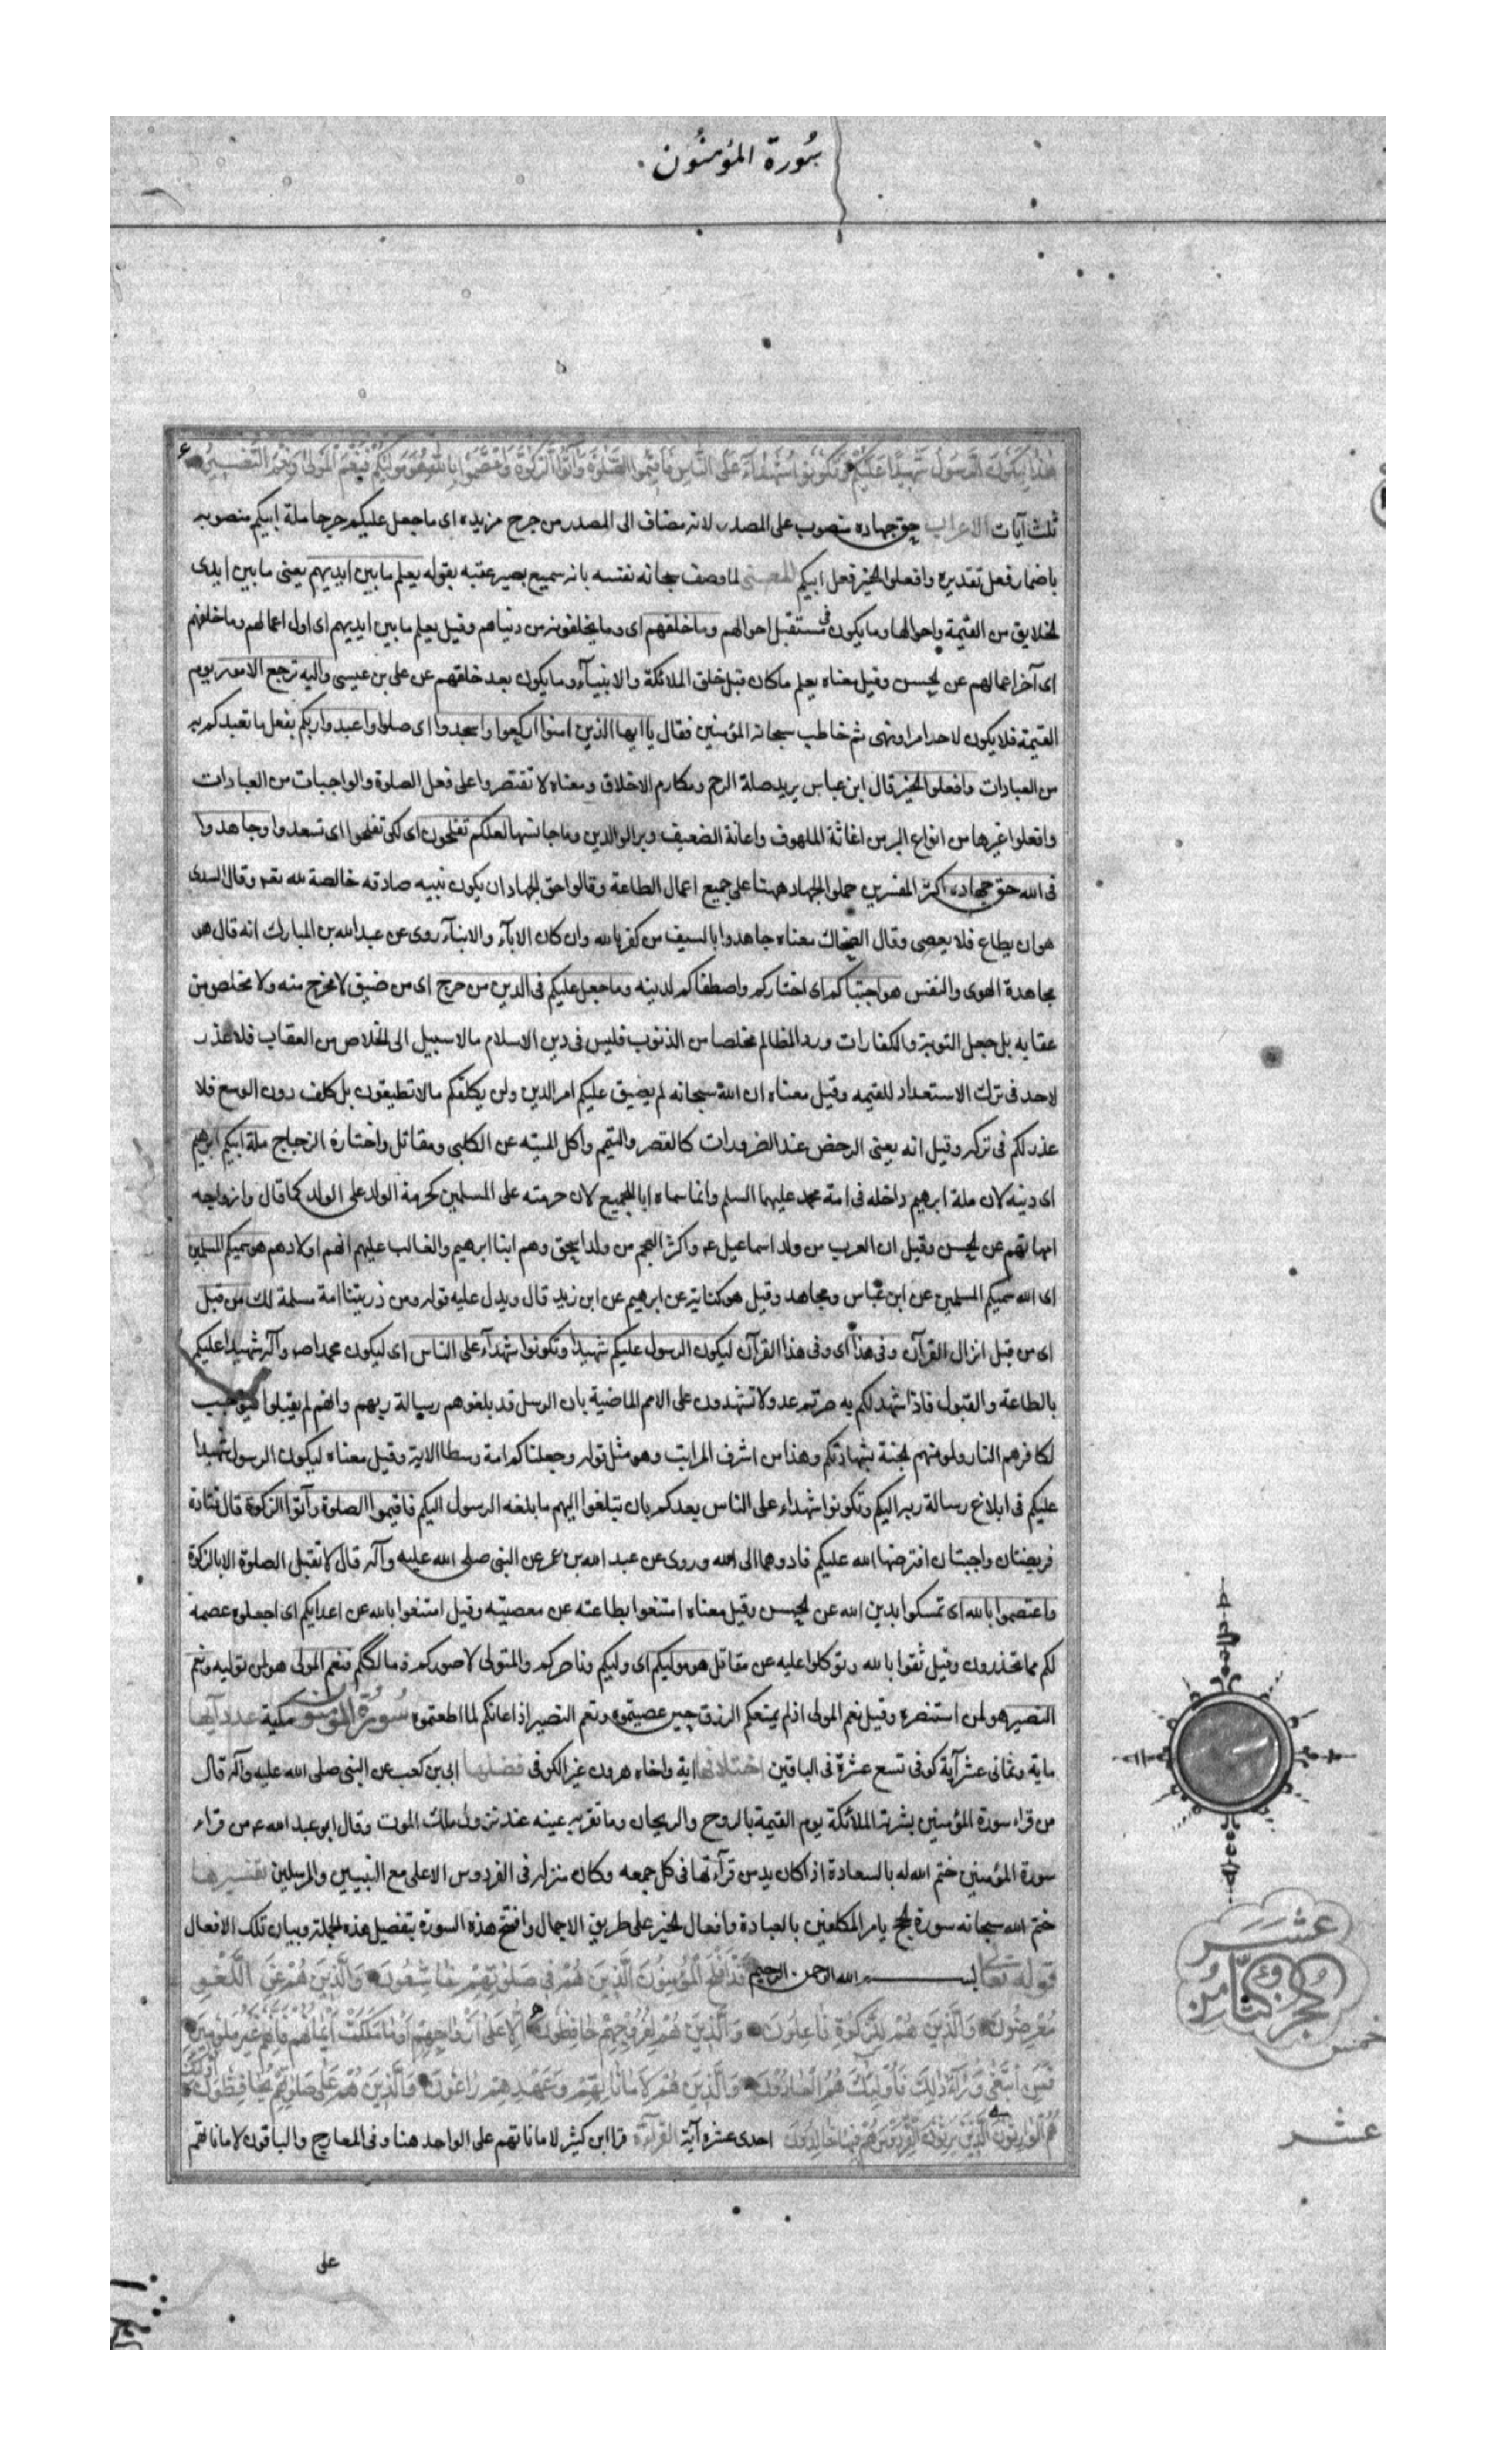 سُورة المؤمنُون
هذا ليكون الرسول شهيدا عليكم وتكونوا شهدآء على الناس فاقيموا الصلوة وآتوا الزكوة واعتصموا بالله هو موليكم فنعم المولى ونعم النصير
ثلث آيات الاعراب حق جهاده منصوب على المصدر لانه مضاف الى المصدر من حرج مزيده اى ما جعل عليكم حرجا ملة ابيكم منصوبه
باضمار فعل تقديره وافعلوا الخير فعل ابيكم المعنى لما وصف سبحانه نفسه بانه سميع بصير عقبه بقوله يعلم ما بين ايديهم يعنى ما بين ايدى
لخلايق من القيمة واحوالها وما يكون فى مستقبل احوالهم وما خلفهم اى وما يخلفونه من دنياهم وقيل يعلم ما بين ايديهم اى اول اعمالهم وما خلفهم
اى آخر اعمالهم عن لحسن وقيل معناه يعلم ما كان قبل خلق الملائكة والانبيآء وما يكون بعد خلقهم عن على بن عيسى واليه ترجع الامور يوم
القيمة فلا يكون لاحد امر او نهى ثم خاطب سبحانه المؤمنين فقال يا ايها الذين امنوا اركعوا واسجدوا اى صلوا واعبدوا ربكم بفعل ما تعبدكم به
من العبادات وافعلوا الخير قال ابن عباس يريد صلة الرحم ومكارم الاخلاق ومعناه لا تقتصروا على فعل الصلوة والواجبات من العبادات
وافعلوا غيرها من انواع البر من اغاثة الملهوف واعانة الضعيف وبر الوالدين وما جانسها لعلكم تفلحون اى لكى تفلحوا اى تسعدوا وجاهدوا
فى الله حق جهاده اكثر المفسرين حملوا الجهاد ههنا على جميع اعمال الطاعة وقالوا حق الجهاد ان يكون نبيه صادقه خالصة لله تعـ وقال السدى
هو ان يطاع فلا يعصى وقال الضحاك معناه جاهدوا بالسيف من كفر بالله وان كان الابآء والابنآء روى عن عبد الله بن المبارك انه قال هو
مجاهدة الهوى والنفس هو اجتباكم اى اختاركم واصطفاكم لدينه وما جعل عليكم فى الدين من حرج اى من ضيق لا مخرج منه ولا مخلص من
عقابه بل جعل التوبة والكفارات ورد المظالم مخلصا من الذنوب فليس فى دين الاسلام ما لا سبيل الى لخلاص من العقاب فلا عذر
لاحد فى ترك الاستعداد للقيمه وقيل معناه ان الله سبحانه لم يضيق عليكم امر الدين ولن يكلفكم ما لا تطيقون بل كلف دون الوسع فلا
عذر لكم فى تركه وقيل انه يعنى الرخص عند الضرورات كالقصر والتيمم واكل الميته عن الكلبى ومقاتل واختاره الزجاج ملة ابيكم ابرهيم
اى دينه لان ملة ابرهيم داخله فى امة محمد عليهما السلم وانما سماه ابا للجميع لان حرمته على المسلمين كحرمة الوالد على الولد كما قال وازواجه
امهاتهم عن لحسن وقيل ان العرب من ولد اسماعيل عـ واكثر العجم من ولد اسحق وهم ابنا ابرهيم والغالب عليهم انهم اولادهم هو سميكم المسلمين
اى الله سميكم المسلمين عن ابن عباس ومجاهد وقيل هو كناية عن ابرهيم عن ابن زيد قال ويدل عليه قوله ومن ذريتنا امة مسلمة لك من قبل
اى من قبل انزال القرآن وفى هذا اى وفى هذا القرآن ليكون الرسول عليكم شهيدا وتكونوا شهدآء على الناس اى ليكون محمدا صـ وآله شهيدا عليكم
بالطاعة والقبول فاذا شهد لكم به صرتم عدولا تشهدون على الامم الماضية بان الرسل قد بلغوهم رسالة ربهم وانهم لم يقبلوا فيوجب
لكافرهم النار ولمؤمنهم لجنة بشهادتكم وهذا من اشرف المراتب وهو مثل قوله وجعلناكم امة وسطا الاية وقيل معناه ليكون الرسول شهيدا
عليكم فى ابلاغ رسالة ربه اليكم وتكونوا شهداء على الناس بعدكم بان تبلغوا اليهم ما بلغه الرسول اليكم فاقيموا الصلوة وآتوا الزكوة قال قتادة
فريضتان واجبتان افترضها الله عليكم فادوهما الى الله وروى عن عبد الله بن عمر عن النبى صلى الله عليه وآله قال لا تقبل الصلوة الا بالزكوة
واعتصموا بالله اى تمسكوا بدين الله عن لحسن وقيل معناه امتنعوا بطاعته عن معصيته وقيل امتنعوا بالله عن اعدايكم اى اجعلوه عصمة
لكم مما تحذرون وقيل ثقوا بالله وتوكلوا عليه عن مقاتل هو موليكم اى وليكم وناصركم والمتولى لاموركم ومالككم فنعم المولى هو لمن توليه ونعم
النصير هو لمن استنصره وقيل نعم المولى اذ لم يمنعكم الرزق حين عصيتموه ونعم النصير اذ اعانكم لما اطعتموه سورة المؤمنون مكية عدد آيها
ماية وثمانى عشر آية كوفى تسع عشرة فى الباقين اختلافها اية واخاه هرون غير الكوفى فضلها ابى بن كعب عن النبى صلى الله عليه وآله قال
من قراء سورة المؤمنين بشرته الملائكة يوم القيمة بالروح والريحان وما تقر به عينه عند نزول ملك الموت وقال ابو عبد الله عـ من قراء
سورة المؤمنين ختم الله له بالسعادة اذا كان يدمن قرآءتها فى كل جمعه وكان منزله فى الفردوس الاعلى مع النبيين والمرسلين تفسيرها
ختم الله سبحانه سورة لحج يامر المكلفين بالعبادة وافعال لخير على طريق الاجمال وافتتح هذه السورة بتفصيل هذه الجملة وبيان تلك الافعال
قوله تعالى بسم الله الرحمن الرحيم قد افلح المؤمنون الذين هم فى صلوتهم خاشعون والذين هم عن اللغو
معرضون والذين هم للزكوة فاعلون والذين هم لفروجهم حافظون الا على ازواجهم او ما ملكت ايمانهم فانهم غير ملومين
فمن ابتغى ورآء ذلك فاولئك هم العادون والذين هم لاماناتهم وعهدهم راعون والذين هم على صلوتهم يحافظون اولئك
هم الوارثون الذين يرثون الفردوس هم فيها خالدون احدى عشرة آية القرآءة قرا ابن كثير لاماناتهم على الواحد هنا وفى المعارج والباقون لاماناتهم
عشر
الجزء الثامن
خمس
عشر
على